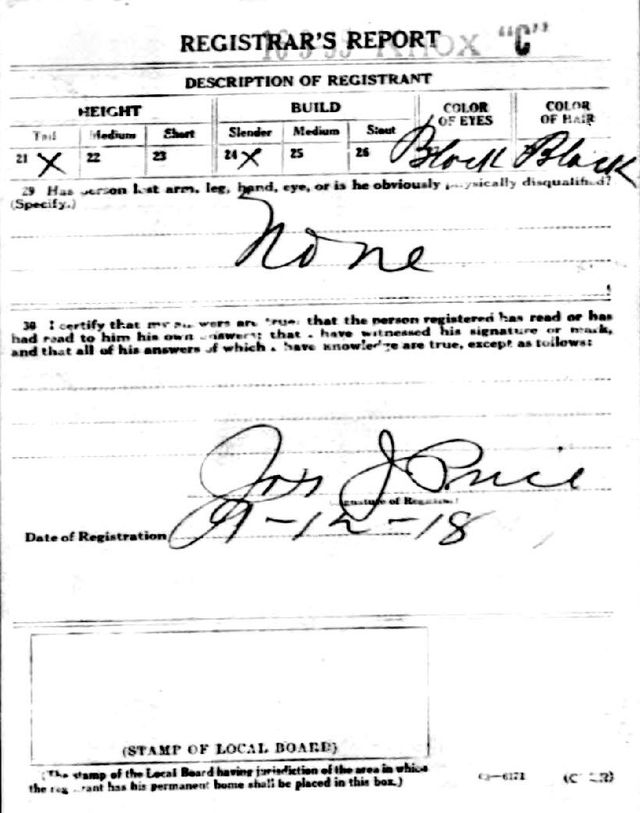 REGISTRAR'S REPORT KNOX "C"
DESCRIPTION OF REGISTRANT
HEIGHT BUILD COLOR OF EYES COLOR OF HAIR
Tall Medium Short Slender Medium Stout
21 X 22 23 24 X 25 26 Black Black
29 Has person lost arm, leg, hand, eye, or is he obviously physically disqualified?
(Specify.)
None
30 I certify that my answers are true; that the person registered has read or has
had read to him his own answers; that I have witnessed his signature or mark,
and that all of his answers of which I have knowledge are true, except as follows:
Jos J. Price
Signature of Registrar
Date of Registration 9-12-18
(STAMP OF LOCAL BOARD)
(The stamp of the Local Board having jurisdiction of the area in which
the registrant has his permanent home shall be placed in this box.)